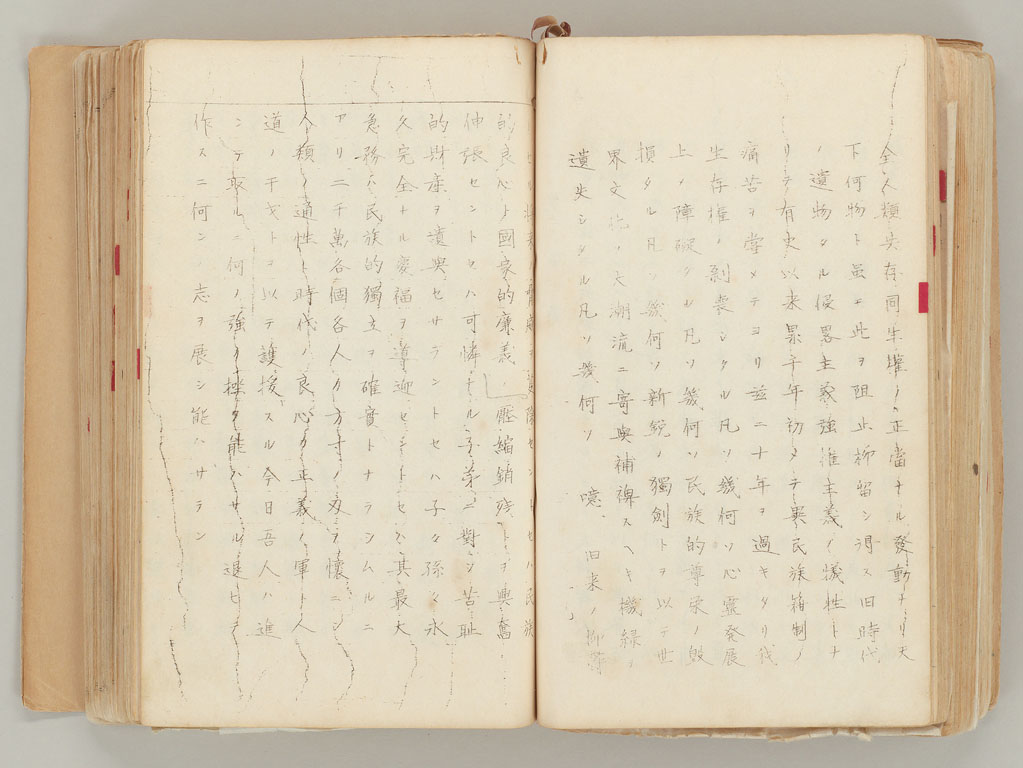 全人類共存同生權ノ正當ナル發動ナリ天
下何物ト虽モ此ヲ阻止抑留シ得ス旧時代
ノ遺物タル侵畧主義強權主義ノ犠牲トナ
リテ有史以来累千年初メテ異民族箝制ノ
痛苦ヲ嘗メテヨリ茲ニ十年ヲ過キタリ我
生存權ノ剝喪シタル凡ソ幾何ソ心霊發展
上ノ障礙タル凡ソ幾何ソ民族的尊栄ノ毀
損タル凡ソ幾何ソ新鋭ト獨創トヲ以テ世
界文化ノ大潮流ニ寄與補裨スヘキ機縁ヲ
遺失シタル凡ソ幾何ソ 噫 旧来ノ抑鬱
セハ民族
的良心ト國家的廉義ノ壓縮銷残トヲ興奮
伸張セントセハ可憐ナル子弟ニ對シ苦恥
的財産ヲ遺與セサラントセハ子々孫々永
久完全ナル慶福ヲ導迎セントセハ其最大
急務ハ民族的獨立ヲ確實トナラシムルニ
アリ二千萬各個各人カ方寸ノ刄ヲ懐ニシ
人類ノ通性ト時代ノ良心カ正義ノ軍ト人
道ノ干戈トヲ以テ護援スル今日吾人ハ進
ンテ取ルニ何ノ強カ挫ク能ハサル退ヒテ
作スニ何ンノ志ヲ展シ能ハサラン